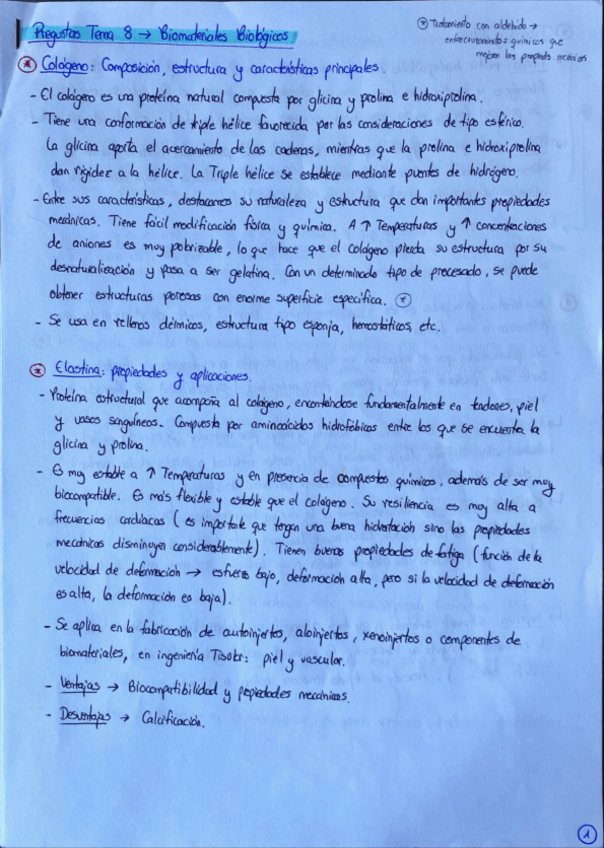 Preguntas Tema 8 → Biomateriales Biológicos
* Tratamiento con aldehido →
entrecruzamientos químicos que
mejoran las propieds mecánicas.
* Colágeno: Composición, estructura y características principales.
- El colágeno es una proteína natural compuesta por glicina y prolina e hidroxiprolina.
- Tiene una conformación de triple hélice favorecida por las consideraciones de tipo estérico.
La glicina aporta el acercamiento de las cadenas, mientras que la prolina e hidroxiprolina
dan rigidez a la hélice. La Triple hélice se establece mediante puentes de hidrógeno.
- Entre sus características, destacamos su naturaleza y estructura que dan importantes propiedades
mecánicas. Tiene fácil modificación física y química. A ↑ Temperaturas y ↑ concentraciones
de aniones es muy polarizable, lo que hace que el colágeno pierda su estructura por su
desnaturalización y pasa a ser gelatina. Con un determinado tipo de procesado, se puede
obtener estructuras porosas con enorme superficie específica. *
- Se usa en rellenos dérmicos, estructura tipo esponja, hemostáticos, etc.
* Elastina: propiedades y aplicaciones.
- Proteína estructural que acompaña al colágeno, encontrándose fundamentalmente en tendones, piel
y vasos sanguíneos. Compuesta por aminoácidos hidrofóbicos entre los que se encuentra la
glicina y prolina.
- Es muy estable a ↑ Temperaturas y en presencia de compuestos químicos, además de ser muy
biocompatible. Es más flexible y estable que el colágeno. Su resiliencia es muy alta a
frecuencias cardiacas (es importante que tengan una buena hidratación sino las propiedades
mecánicas disminuyen considerablemente). Tienen buenas propiedades de fatiga (función de la
velocidad de deformación → esfuerzo bajo, deformación alta, pero si la velocidad de deformación
es alta, la deformación es baja).
- Se aplica en la fabricación de autoinjertos, aloinjertos, xenoinjertos o componentes de
biomateriales, en ingeniería Tisular: piel y vascular.
- Ventajas → Biocompatibilidad y propiedades mecánicas.
- Desventajas → Calcificación.
1